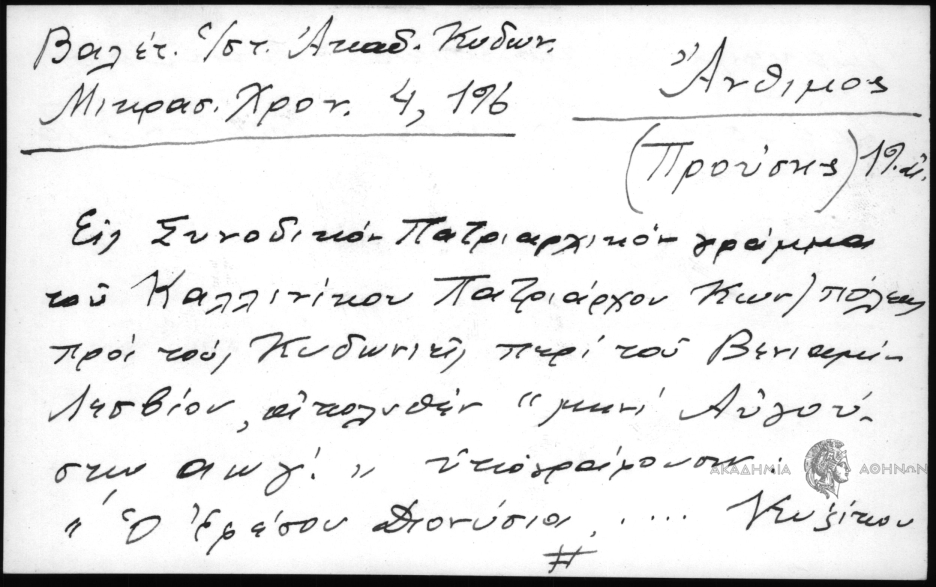 Βαλέτ. Ἱστ. Ἀκαδ. Κυδων.
Μικρασ. Χρον. 4, 196
Ἄνθιμος
(Προύσης) 19. αἰ.
Εἰς Συνοδικὸν Πατριαρχικὸν γράμμα
τοῦ Καλλινίκου Πατριάρχου Κων/πόλεως
πρὸς τοὺς Κυδωνιεῖς περὶ τοῦ Βενιαμὶν
Λεσβίου, ἀπολυθὲν "μηνὶ Αὐγού-
στῳ αωγ΄." ὑπογράφουσιν:
ΑΚΑΔΗΜΙΑ ΑΘΗΝΩΝ
"Ὁ Ἐρέσου Διονύσιος, ....